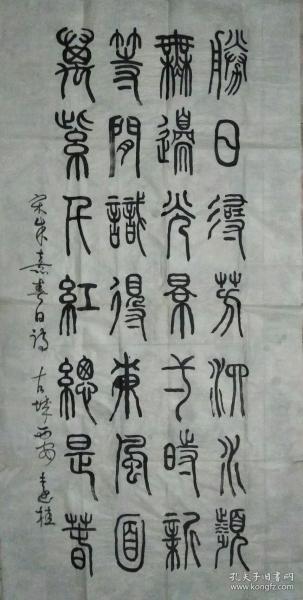 勝日尋芳泗水瀕
無邊光景弌時新
等閒識得東風面
萬紫千紅總是春
宋朱熹春日詩 古城西安 桂
孔夫子旧书网